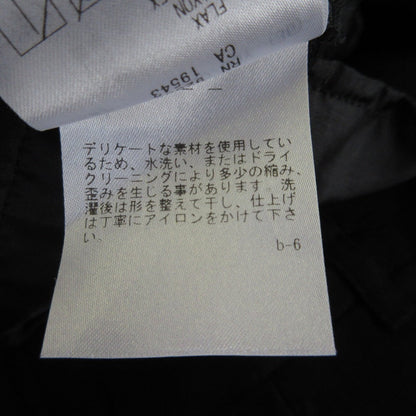 FLAX
RN
CA 19543
デリケートな素材を使用してい
るため、水洗い、またはドライ
クリーニングにより多少の縮み、
歪みを生じる事があります。洗
濯後は形を整えて干し、仕上げ
は丁寧にアイロンをかけて下さ
い。
b-6